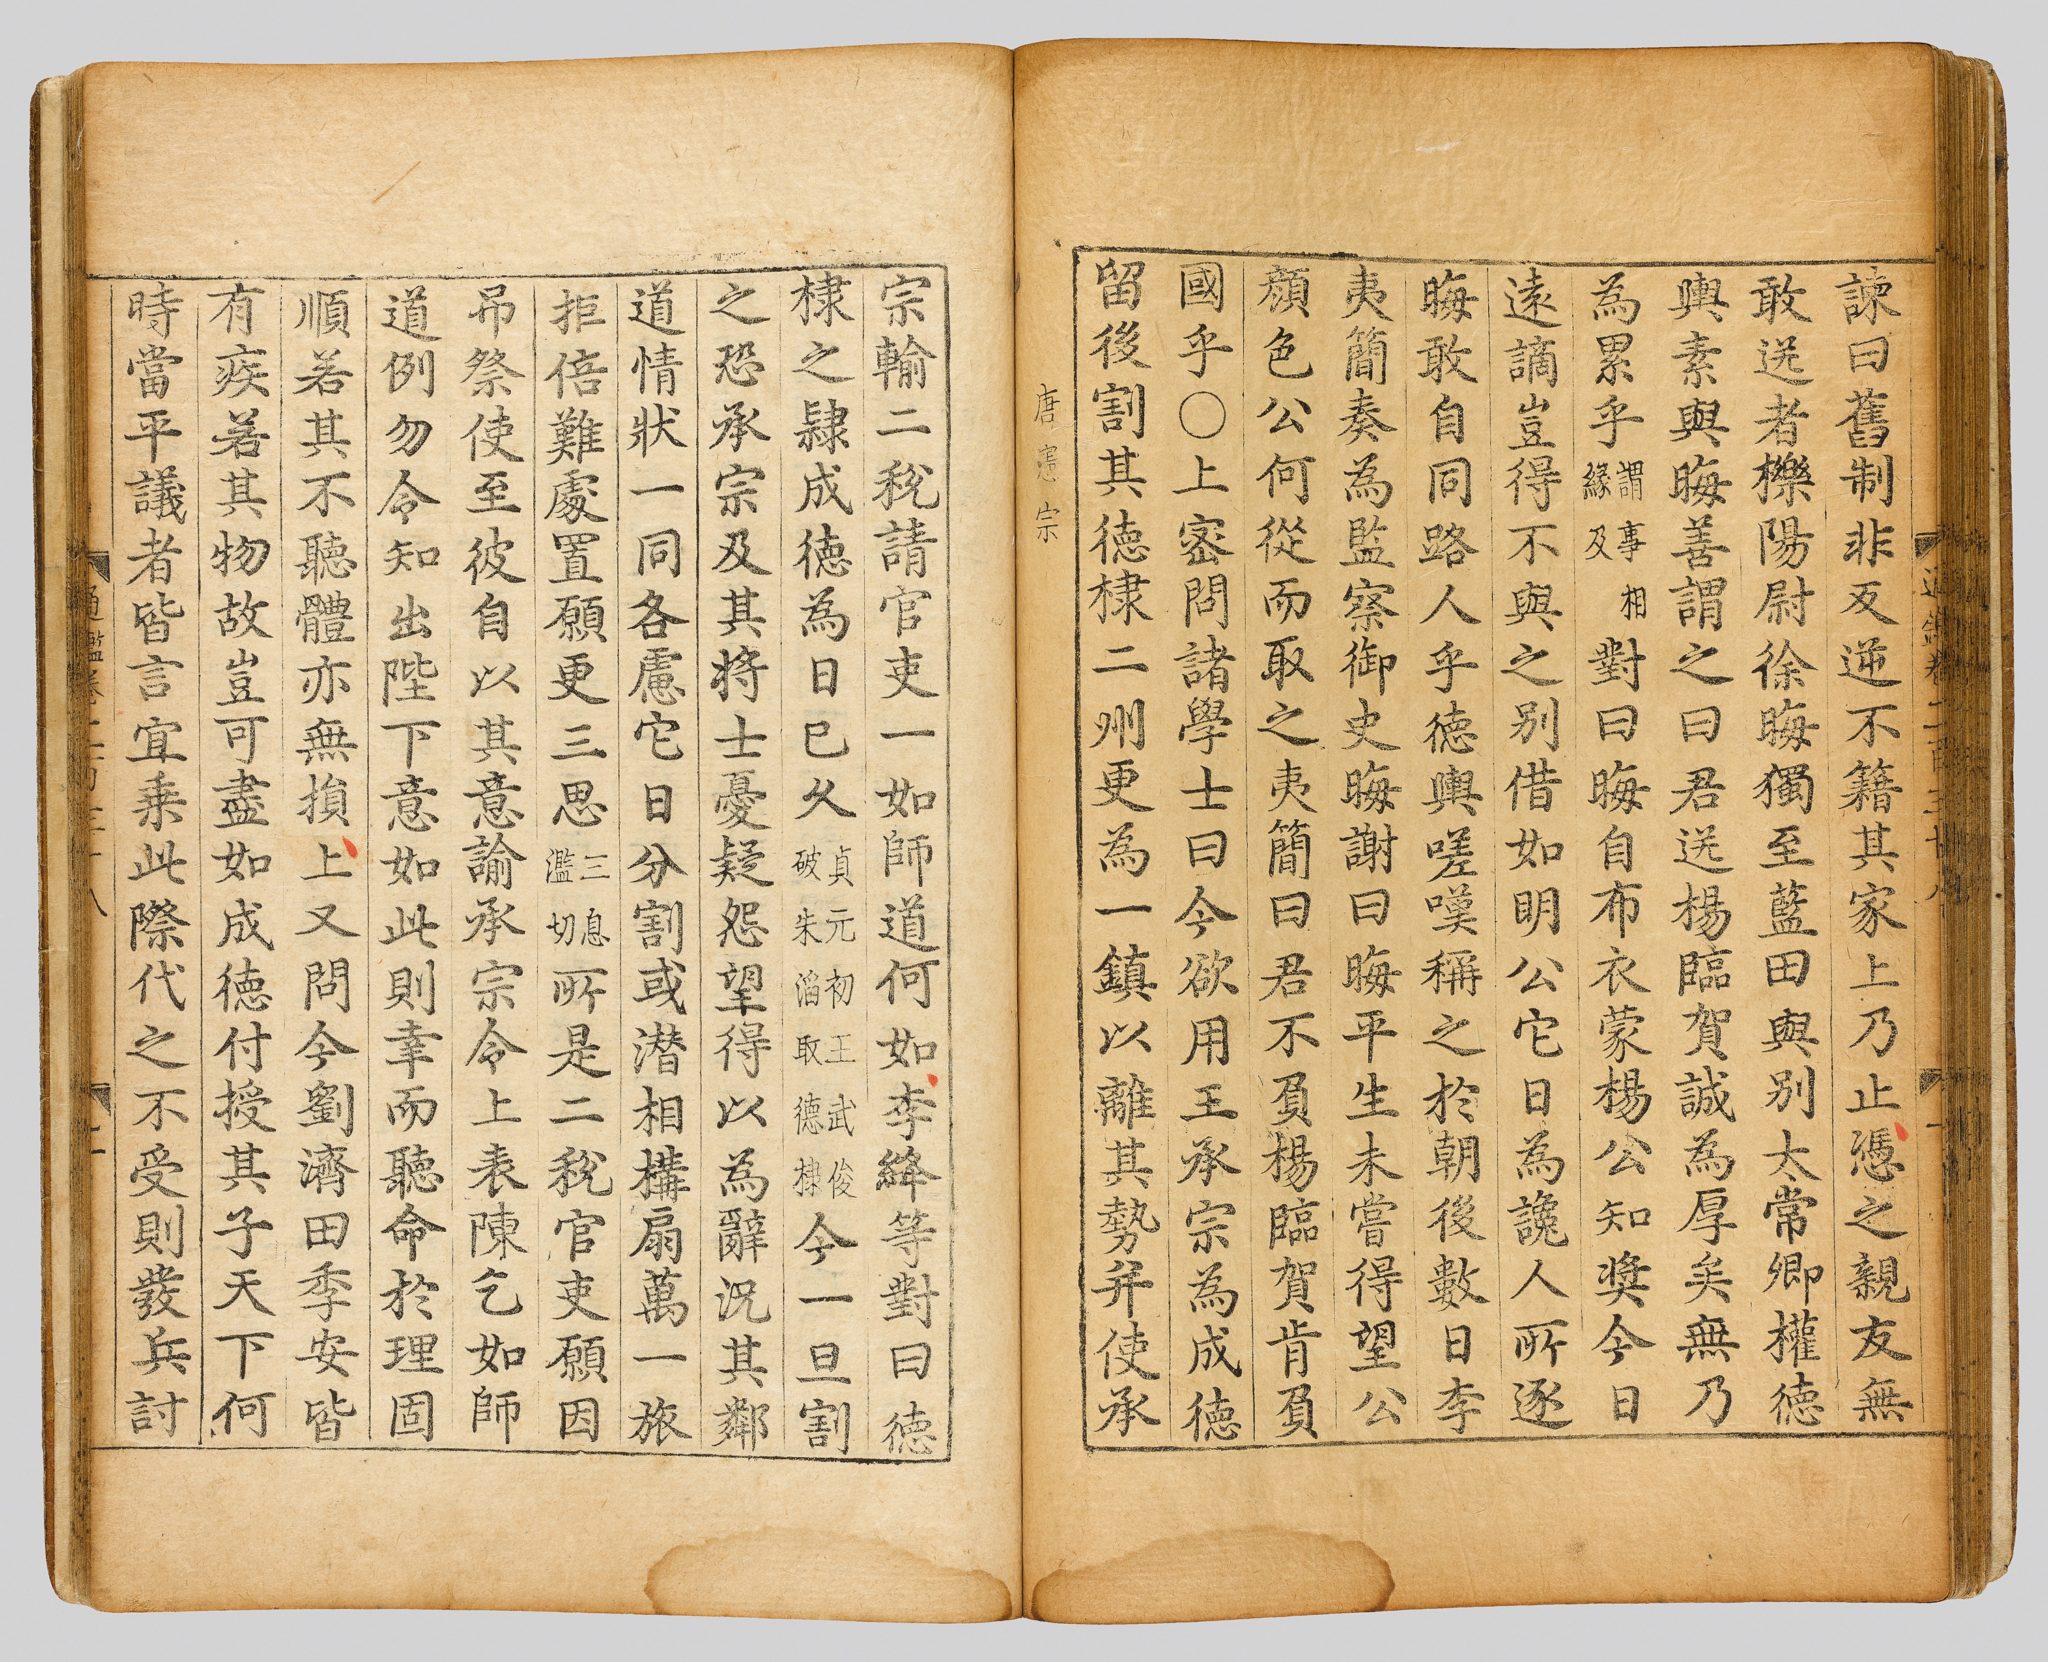 通鑑卷二百三十八 一
諫曰舊制非反逆不籍其家上乃止憑之親友無
敢送者櫟陽尉徐晦獨至藍田與別太常卿權德
輿素與晦善謂之曰君送楊臨賀誠為厚矣無乃
為累乎謂事相緣及對曰晦自布衣蒙楊公知奬今日
遠謫豈得不與之別借如明公它日為讒人所逐
晦敢自同路人乎德輿嗟嘆稱之於朝後數日李
夷簡奏為監察御史晦謝曰晦平生未嘗得望公
顔色公何從而取之夷簡曰君不負楊臨賀肯負
國乎〇上密問諸學士曰今欲用王承宗為成德
留後割其德棣二州更為一鎮以離其勢并使承
唐憲宗
宗輸二稅請官吏一如師道何如李絳等對曰德
棣之隷成德為日已久貞元初王武俊破朱滔取德棣今一旦割
之恐承宗及其將士憂疑怨望得以為辭況其鄰
道情狀一同各慮它日分割或潜相構扇萬一旅
拒倍難處置願更三思三息濫切所是二稅官吏願因
吊祭使至彼自以其意諭承宗令上表陳乞如師
道例勿令知出陛下意如此則幸而聽命於理固
順若其不聽體亦無損上又問今劉濟田季安皆
有疾若其物故豈可盡如成德付授其子天下何
時當平議者皆言宜乗此際代之不受則發兵討
通鑑卷二百三十八 二